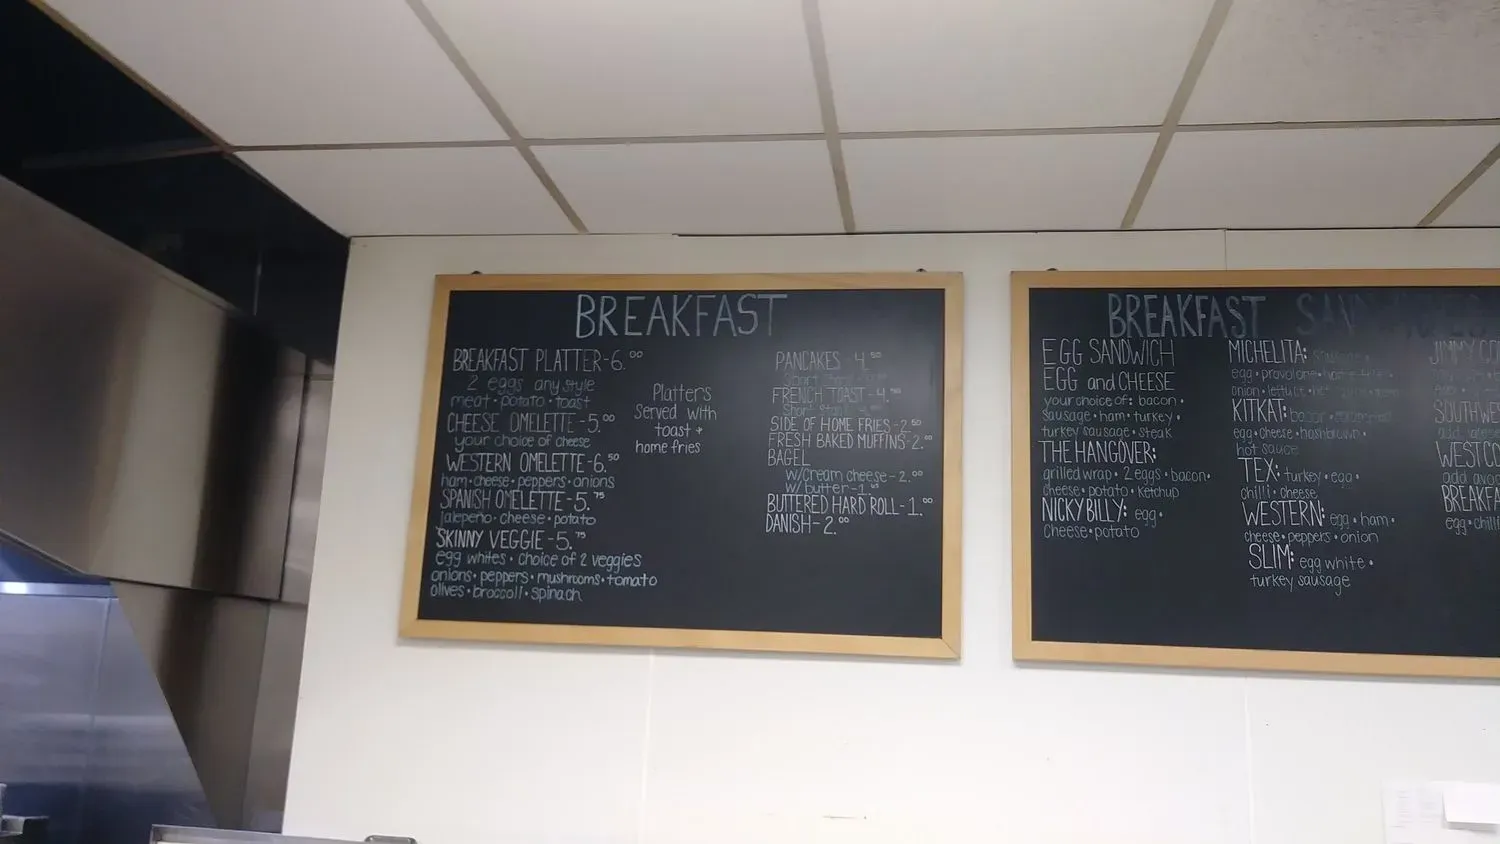 BREAKFAST
BREAKFAST PLATTER-6.00
2 eggs any style
meat • potato • toast
CHEESE OMELETTE-5.00
your choice of cheese
WESTERN OMELETTE-6.50
ham•cheese•peppers•onions
SPANISH OMELETTE-5.75
jalepeño•cheese•potato
SKINNY VEGGIE-5.75
egg whites•choice of 2 veggies
onions•peppers•mushrooms•tomato
olives•broccoli•spinach
Platters
served with
toast +
home fries
PANCAKES - 4.50
Short Stack
FRENCH TOAST-4.50
Short Stack
SIDE OF HOME FRIES-2.50
FRESH BAKED MUFFINS-2.00
BAGEL
w/cream cheese-2.00
w/butter-1.
BUTTERED HARD ROLL-1.00
DANISH-2.00
BREAKFAST SANDWICHES
EGG SANDWICH
EGG and CHEESE
your choice of: bacon•
sausage•ham•turkey•
turkey sausage•steak
THE HANGOVER:
grilled wrap•2 eggs•bacon•
cheese•potato•ketchup
NICKY BILLY: egg•
cheese•potato
MICHELITA: sausage•
egg•provolone•
onion•lettuce•
KITKAT: bacon•
egg•cheese•hashbrown•
hot sauce
TEX: turkey•egg•
chilli•cheese
WESTERN: egg•ham•
cheese•peppers•onion
SLIM: egg white•
turkey sausage
JIMMY
SOUTHWE
add
WESTCO
add
BREAKFA
egg•chilli